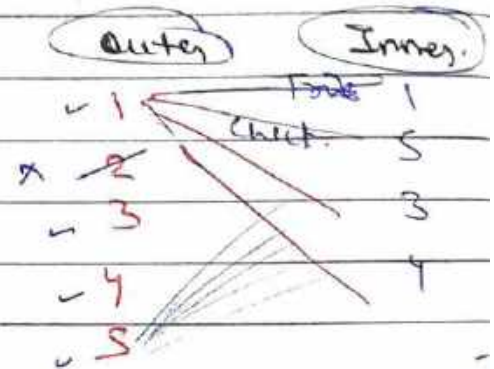 Outer Inner.
✓ 1 1
Check. 5
x 2
✓ 3 3
✓ 4 4
✓ 5